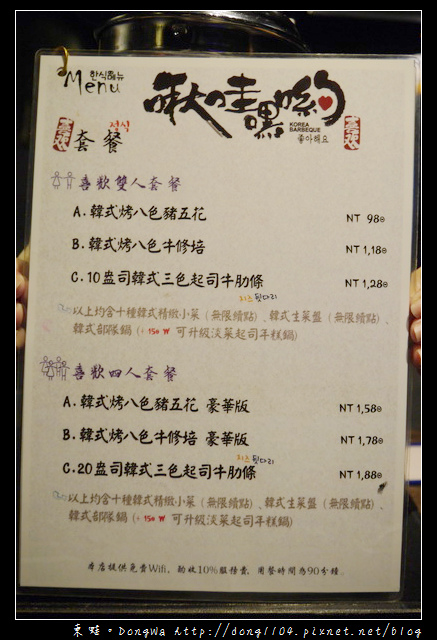 한식메뉴
Menu
啾哇嘿喲
KOREA
BARBEQUE
좋아해요
喜歡
套餐
정식
喜歡雙人套餐
A.韓式烤八色豬五花 NT 980
B.韓式烤八色牛修培 NT 1,180
C.10盎司韓式三色起司牛肋條 NT 1,280
치즈 뒷다리
以上均含十種韓式精緻小菜(無限續點)、韓式生菜盤(無限續點)、
韓式部隊鍋(+150 ₩ 可升級淡菜起司年糕鍋)
喜歡四人套餐
A.韓式烤八色豬五花 豪華版 NT 1,580
B.韓式烤八色牛修培 豪華版 NT 1,780
C.20盎司韓式三色起司牛肋條 NT 1,880
치즈 뒷다리
以上均含十種韓式精緻小菜(無限續點)、韓式生菜盤(無限續點)、
韓式部隊鍋(+150 ₩ 可升級淡菜起司年糕鍋)
本店提供免費Wifi, 酌收10%服務費, 用餐時間為90分鐘..
東蛙。DongWa http://dong1104.pixnet.net/blog